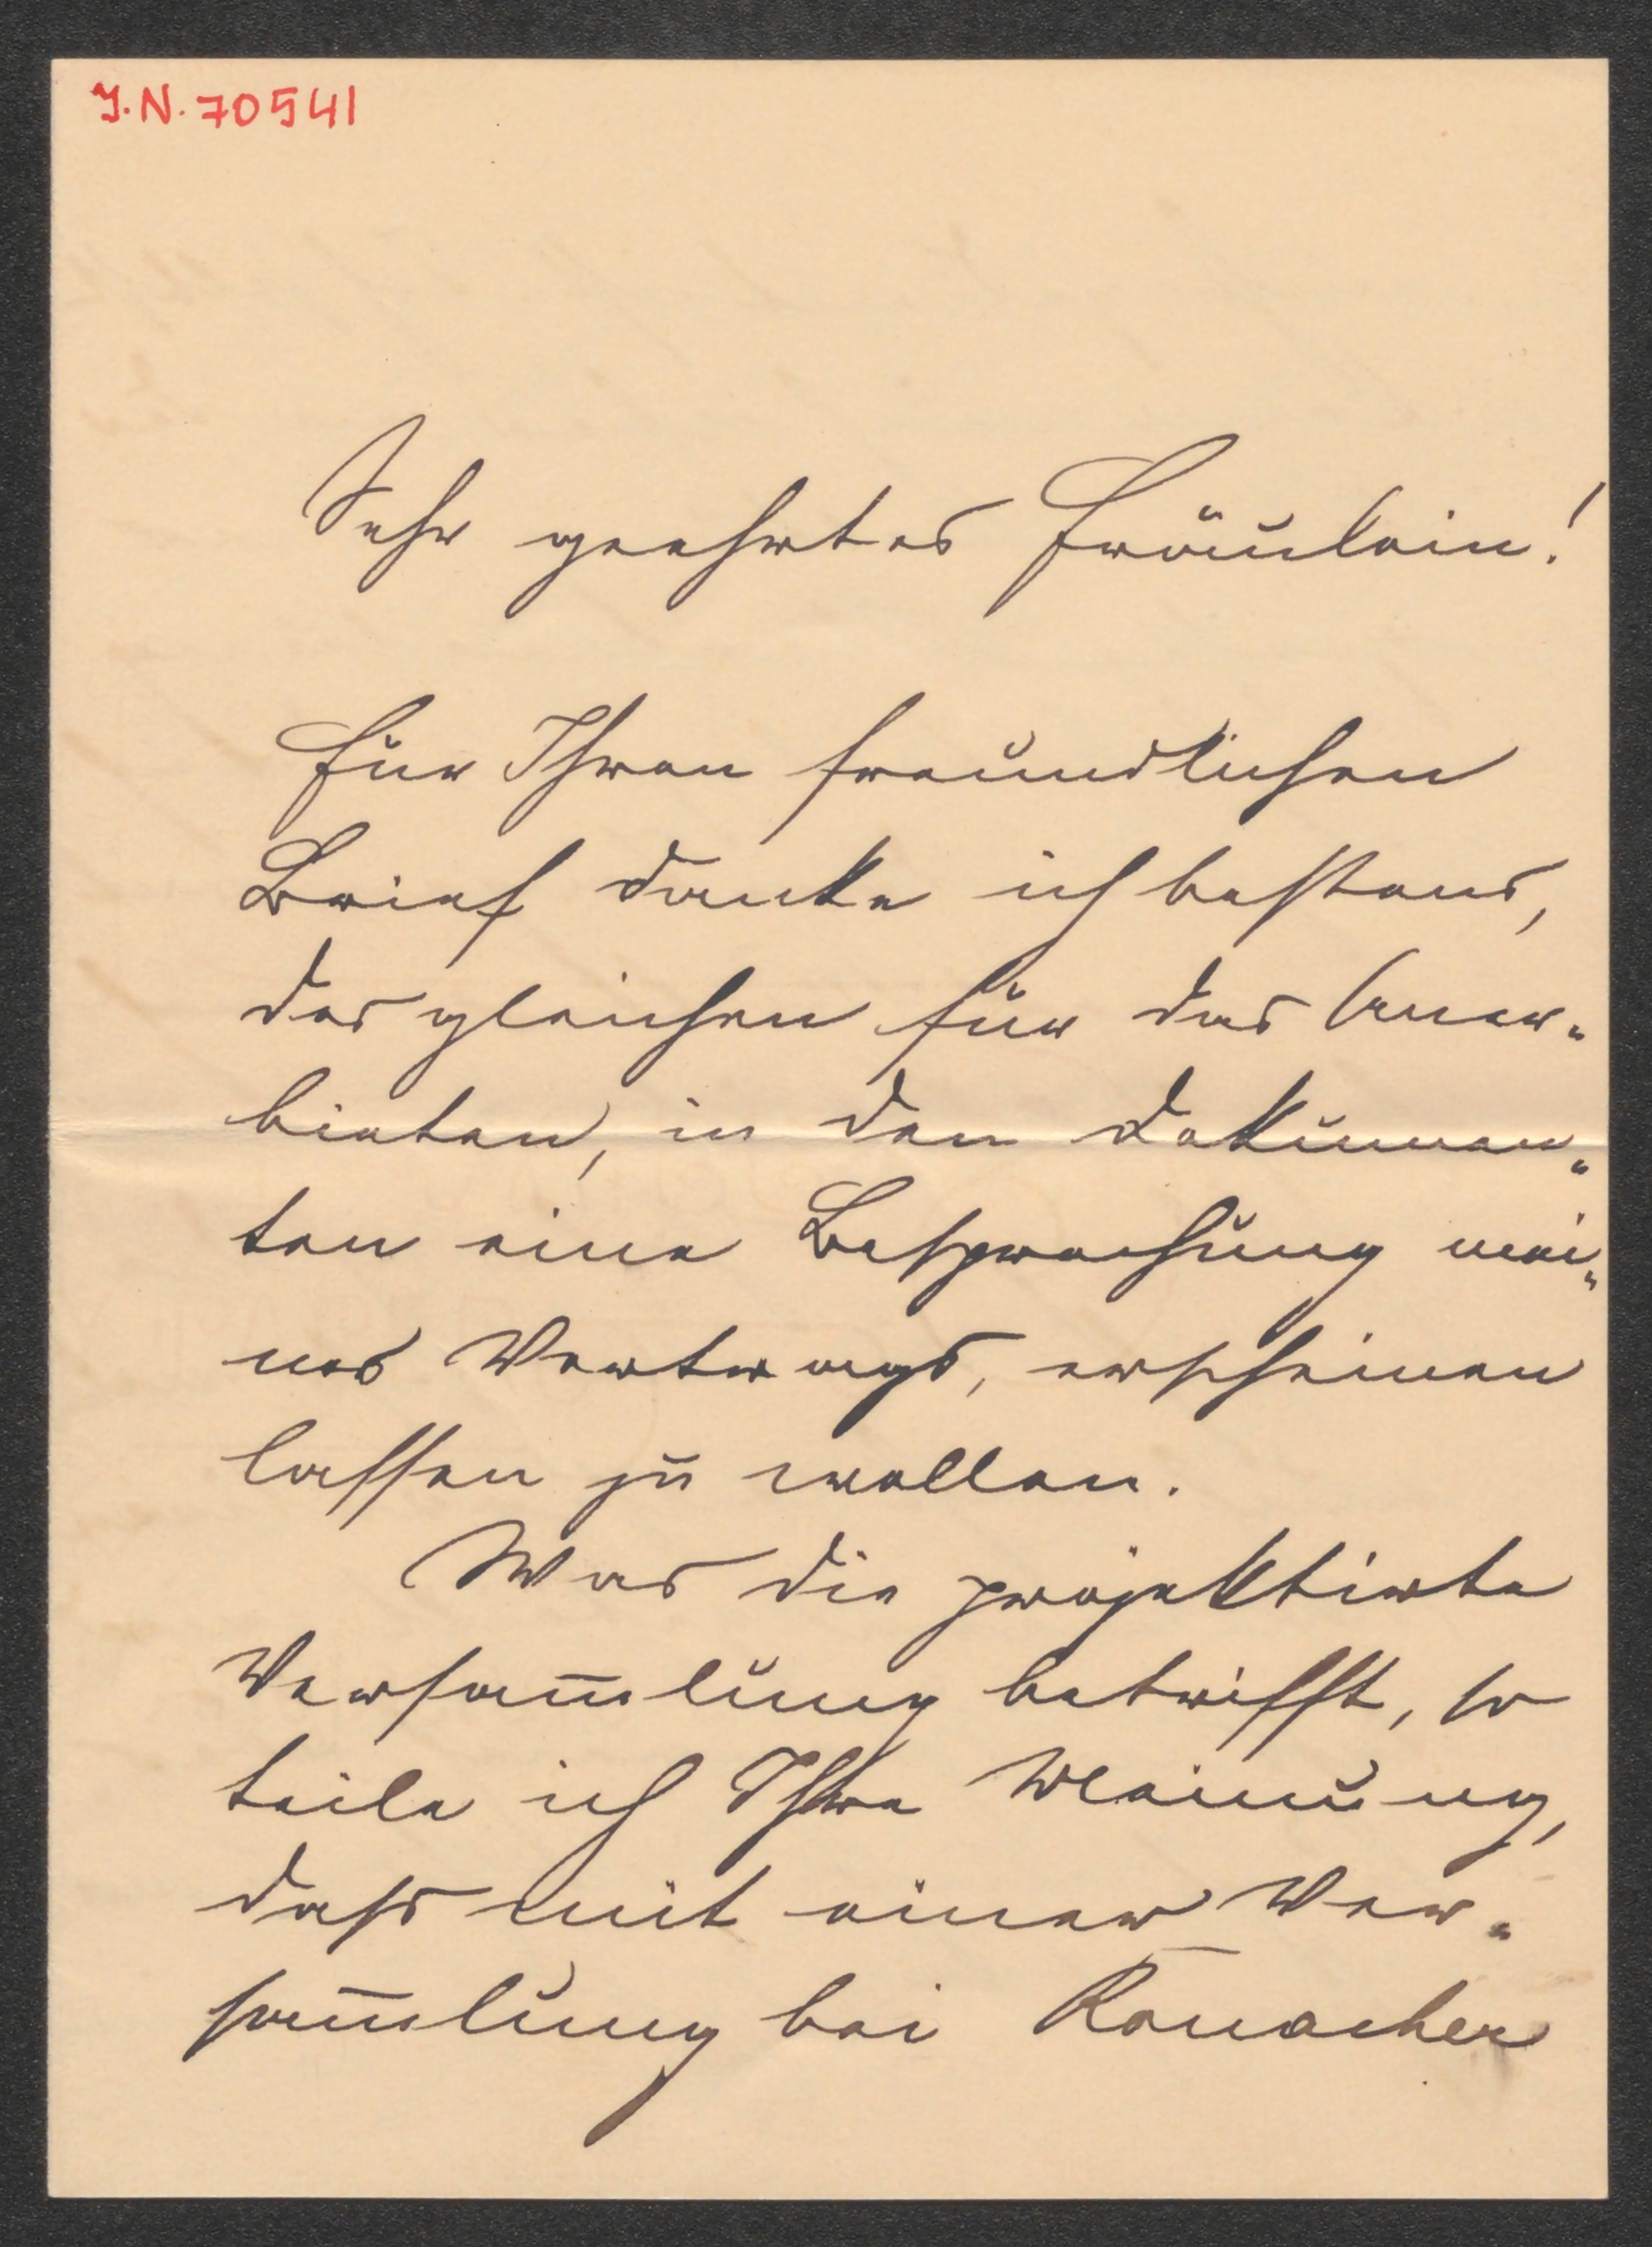 J.N. 70541
Sehr geehrtes Fräulein!
Für Ihren freundlichen
Brief danke ich bestens,
desgleichen für das Aner-
bieten, in den Dokumen-
ten eine Besprechung mei-
nes Vortrags, erscheinen
lassen zu wollen.
Was die projektirte
Versam̅lung betrifft, so
teile ich Ihre Meinung,
dass mit einer Ver-
sam̅lung bei Ronacher